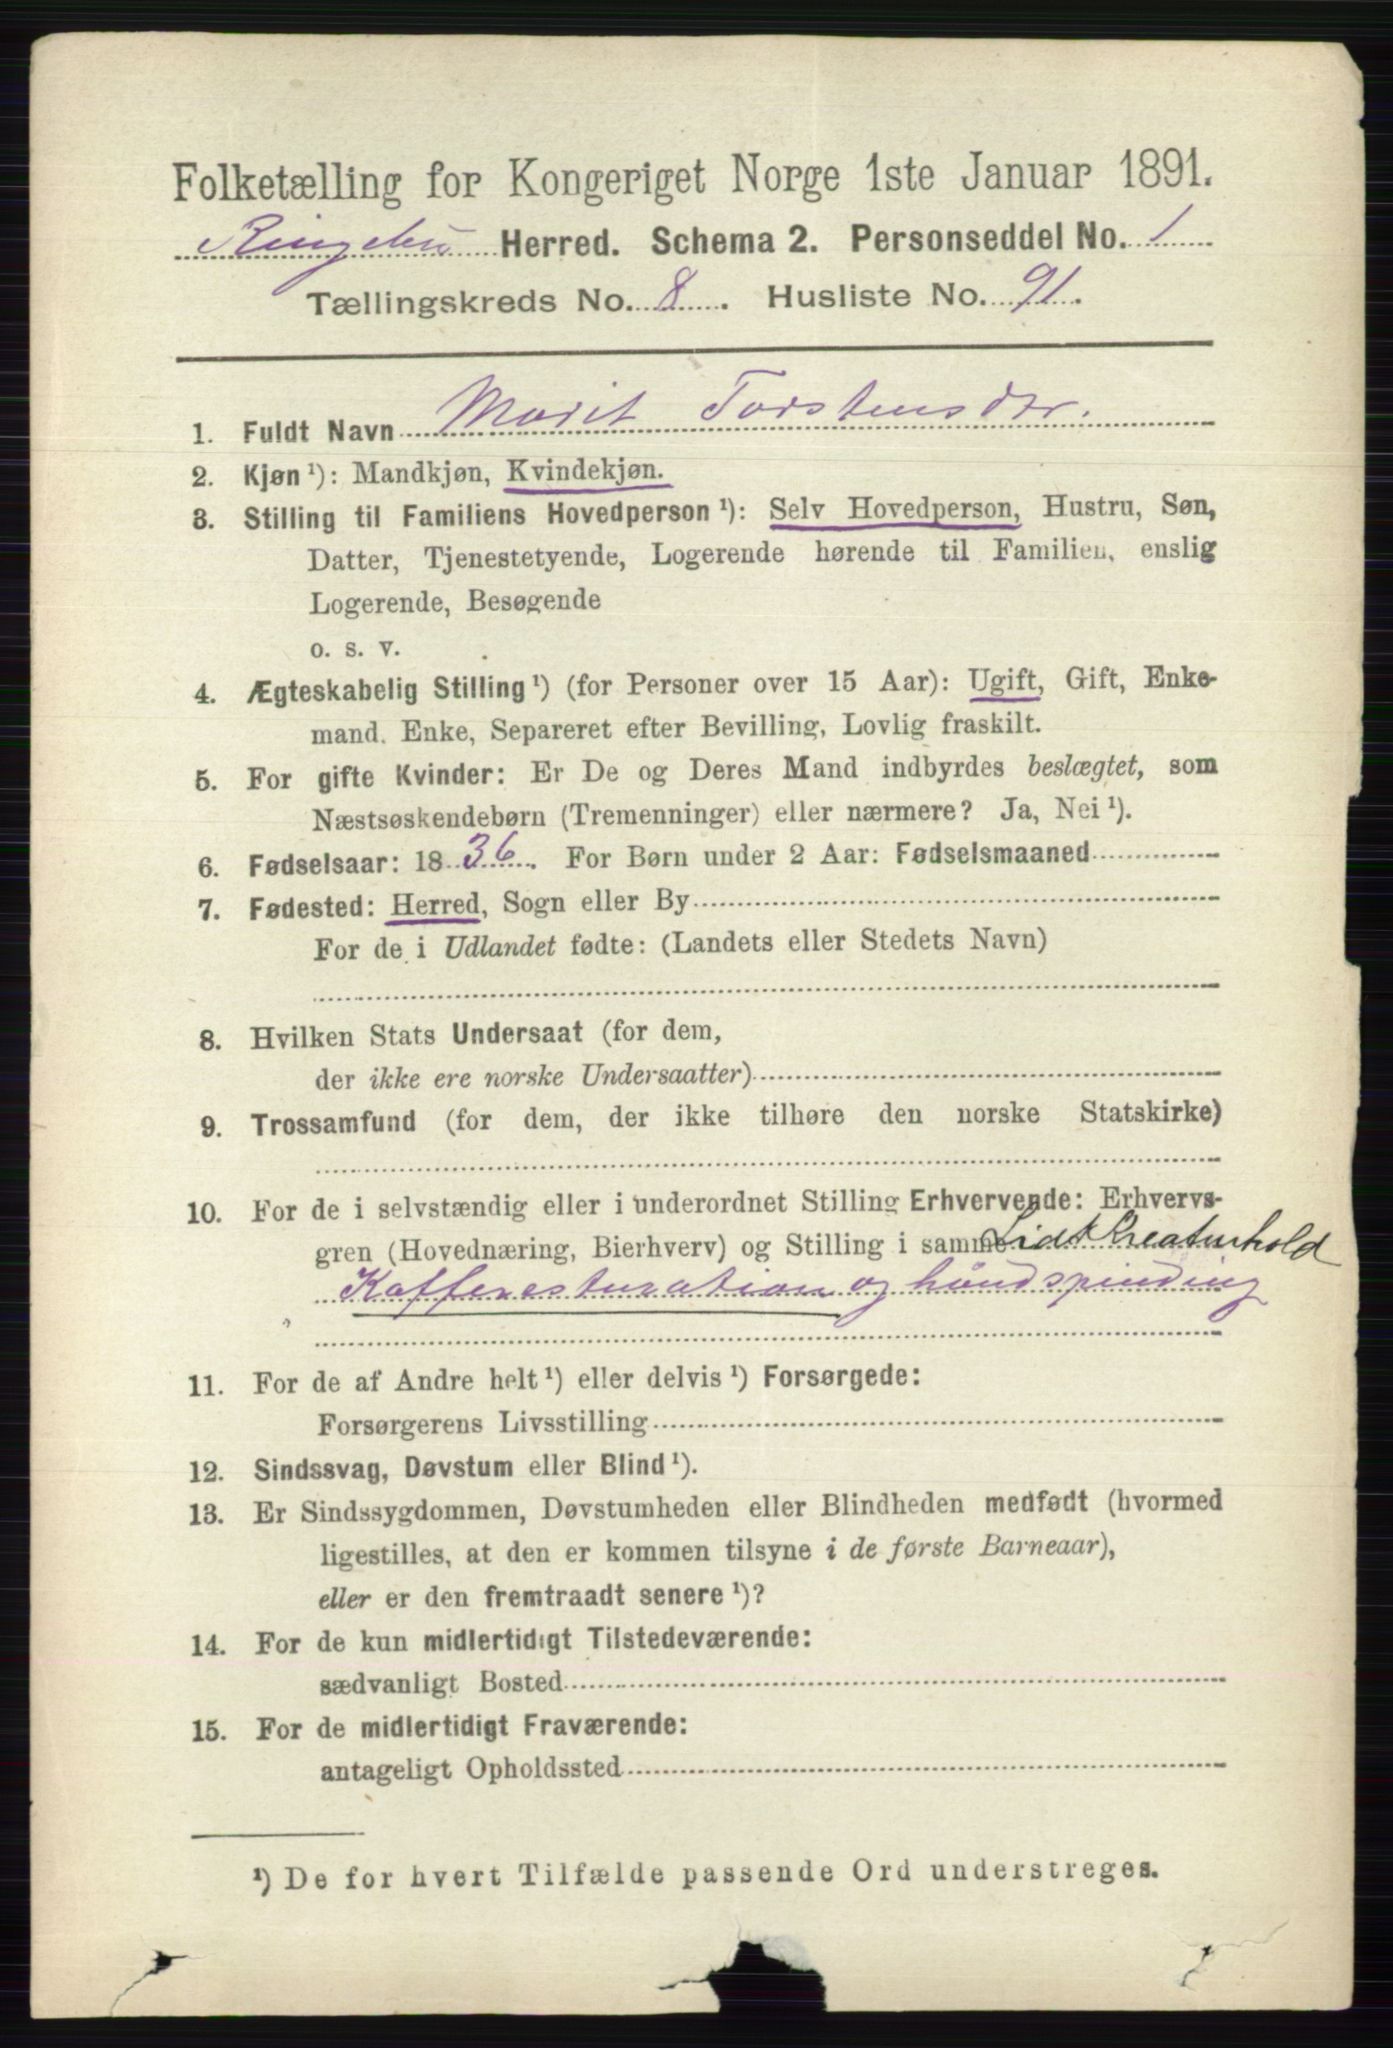 Folketælling for Kongeriget Norge 1ste Januar 1891.
Ringebu Herred. Schema 2. Personseddel No. 1
Tællingskreds No. 8. Husliste No. 91.
1. Fuldt Navn Marit Torstensdtr.
2. Kjøn ¹): Mandkjøn, Kvindekjøn.
3. Stilling til Familiens Hovedperson ¹): Selv Hovedperson, Hustru, Søn,
Datter, Tjenestetyende, Logerende hørende til Familien, enslig
Logerende, Besøgende
o. s. v.
4. Ægteskabelig Stilling ¹) (for Personer over 15 Aar): Ugift, Gift, Enke-
mand. Enke, Separeret efter Bevilling, Lovlig fraskilt.
5. For gifte Kvinder: Er De og Deres Mand indbyrdes beslægtet, som
Næstsøskendebørn (Tremenninger) eller nærmere? Ja, Nei ¹).
6. Fødselsaar: 1836. For Børn under 2 Aar: Fødselsmaaned
7. Fødested: Herred, Sogn eller By
For de i Udlandet fødte: (Landets eller Stedets Navn)
8. Hvilken Stats Undersaat (for dem,
der ikke ere norske Undersaatter)
9. Trossamfund (for dem, der ikke tilhøre den norske Statskirke)
10. For de i selvstændig eller i underordnet Stilling Erhvervende: Erhvervs-
gren (Hovednæring, Bierhverv) og Stilling i samme Lidt Kreaturhold
Kafferesturation og håndspinding
11. For de af Andre helt ¹) eller delvis ¹) Forsørgede:
Forsørgerens Livsstilling
12. Sindssvag, Døvstum eller Blind ¹).
13. Er Sindssygdommen, Døvstumheden eller Blindheden medfødt (hvormed
ligestilles, at den er kommen tilsyne i de første Barneaar),
eller er den fremtraadt senere ¹)?
14. For de kun midlertidigt Tilstedeværende:
sædvanligt Bosted
15. For de midlertidigt Fraværende:
antageligt Opholdssted
¹) De for hvert Tilfælde passende Ord understreges.